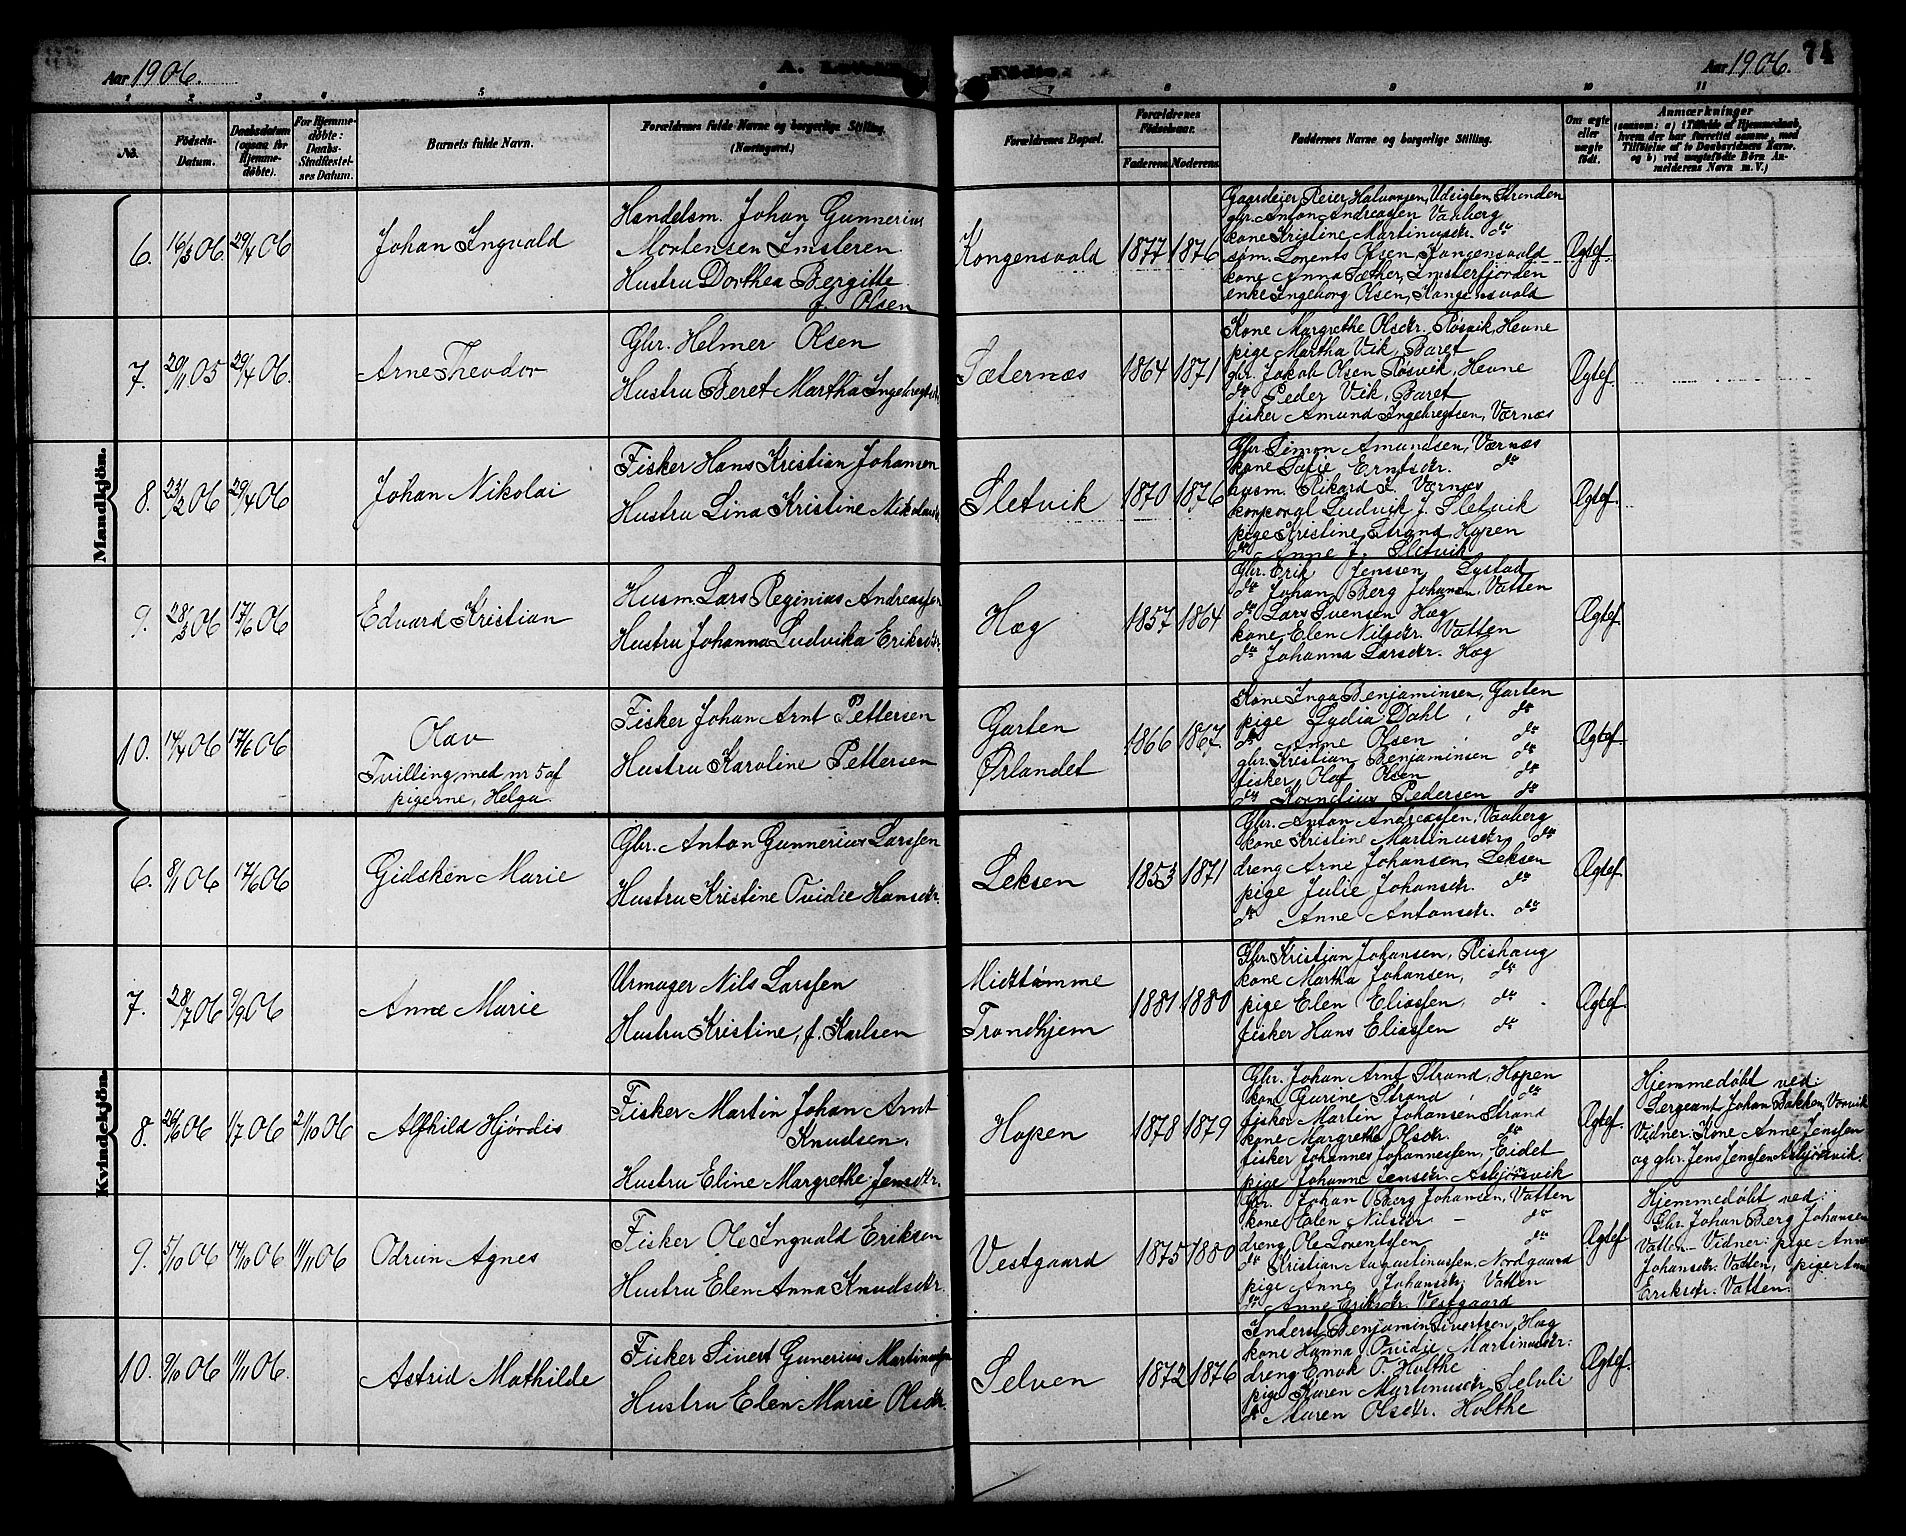 Aar 1906.
A.
Aar 1906. 74
1 2 3 4 5 6 7 8 9 10 11
No.
Fødsels-
Datum.
Daabsdatum
(ogsaa for
Hjemme-
døbte).
For Hjemme-
døbte:
Daabs-
Stadfæstel-
ses Datum.
Barnets fulde Navn.
Forældrenes fulde Navne og borgerlige Stilling.
(Næringsvei.)
Forældrenes Bopæl.
Forældrenes
Fødselsaar.
Faderens. Moderens.
Faddernes Navne og borgerlige Stilling.
Om ægte
eller
uægte
født.
Anmærkninger
(saasom: a) i Tilfælde af Hjemmedaab,
hvem der har forrettet samme, med
Tilføielse af to Daabsvidners Navne,
og b) ved uægtefødte Börn An-
melderens Navn m. V.)
Mandkjön.
6. 16/3 06 29/4 06
Johan Ingvald
Handelsm. Johan Gunnerius
Mortensen Imsteren
Hustru Dorthea Bergitte
f. Olsen
Kongensvold 1877 1876
Gaardeier Reier Halvorsen, Udsigten, Strinden
gbr. Anton Andreassen Vaaberg
kone Kristine Martinusdr. do
søm. Lorents Olsen, Kongensvold
kone Anna Sæther, Imsterfjorden
enke Ingeborg Olsen, Kongensvold
Ægtef.
7. 20/11 05 29/4 06
Arne Theodor
Gbr. Helmer Olsen
Hustru Beret Martha Ingebrigtsdr.
Sæternæs 1864 1871
Kone Margrethe Olsdtr. Røsvik, Hevne
pige Martha Vik, Baret
gbr. Jakob Olsen Røsvik, Hevne
do Peder Vik, Baret
fisker Amund Ingebregtsen, Værnæs
Ægtef.
8. 23/2 06 29/4 06
Johan Nikolai
Fisker Hans Kristian Johansen
Hustru Lina Kristine Nikolaisdr.
Sletvik 1870 1876
Gbr. Simon Amundsen, Værnæs
kone Sofie Erntsdr. do
husm. Rikard J. Værnæs
korporal Ludvik J. Sletvik
pige Kristine Strand, Hopen
do Anne J. Sletvik
Ægtef.
9. 28/3 06 17/6 06
Edvard Kristian
Husm. Lars Reginius Andreassen
Hustru Johanna Ludvika Eriksdtr.
Hæg 1857 1864
Gbr. Erik Jenssen, Lystad
do Johan Berg Johansen, Vatten
do Lars Svensen Hæg
kone Elen Nilsdtr. Vatten
do Johanna Larsdtr. Hæg
Ægtef.
10. 14/4 06 17/6 06
Olav
Tvilling med nr 5 af
pigerne, Helga
Fisker Johan Arnt Pettersen
Hustru Karoline Pettersen
Garten
Ørlandet
1866 1867
Kone Inga Benjaminsen, Garten
pige Lydia Dahl, do
do Anne Olsen, do
gbr. Kristian Benjaminsen do
fisker, Olaf Olsen do
do Kornelius Pedersen do
Ægtef.
Kvindekjön.
6. 8/1 06 17/6 06
Gidsken Marie
Gbr. Anton Gunnerius Larssen
Hustru Kristine Ovidie Hansdtr.
Leksen 1853 1871
Gbr. Anton Andreassen, Vaaberg
kone Kristine Martinusdtr, do
dreng Arne Johansen, Leksen
pige Julie Johansdtr. do
do Anne Antonsdtr. do
Ægtef.
7. 28/7 06 9/9 06
Anne Marie
Urmager Nils Larssen
Hustru Kristine, f. Karlsen
Midttømme
Trondhjem
1881 1880
Gbr. Kristian Johansen, Rishaug
kone Martha Johansen, do
pige Elen Eliassen, do
fisker Hans Eliassen do
Ægtef.
8. 26/6 06 1/7 06 21/10 06
Alfhild Hjørdis
Fisker Martin Johan Arnt
Knudsen,
Hustru Eline Margrethe Jensdtr.
Hopen 1878 1879
Gbr. Johan Arnt Strand, Hopen
kone Gurine Strand, do
fisker Martin Johansen Strand
kone Margrethe Olsdtr. do
fisker Johannes Johannessen, Eidet
pige Johanna Jensdtr. Asbjørsvik
Ægtef.
Hjemmedøbt ved:
Sergeant Johan Bakken, Vorvik
Vidner: Kone Anne Jenssen
og gbr. Jens Jenssen Asbjørsvik.
9. 5/10 06 14/10 06 11/11 06
Odrun Agnes
Fisker Ole Ingvald Eriksen
Hustru Elen Anna Knudsdtr.
Vestgaard 1875 1880
Gbr. Johan Berg Johansen, Vatten
kone Elen Nilsdtr - do
dreng Ole Lorentsen do
do Kristian Augustinussen, Nordgaard
pige Anne Johansdtr. Vatten
do Anne Eriksdtr. Vestgaard
Ægtef.
Hjemmedøbt ved:
Gbr. Johan Berg Johansen
Vatten - Vidner: pige Anne
Johansdtr. Vatten, pige Anne
Eriksdtr. Vatten.
10. 9/10 06 11/11 06.
Astrid Mathilde
Fisker Sivert Gunerius Martinussen
Hustru Elen Marie Olsdtr.
Selven 1872 1876
Inderst Benjamin Sivertsen, Hæg
kone Hanna Ovidie Martinusdtr.
dreng Enok O. Holthe
pige Karen Martinusdtr, Selvli
do Maren Olsdtr. Holthe
Ægtef.